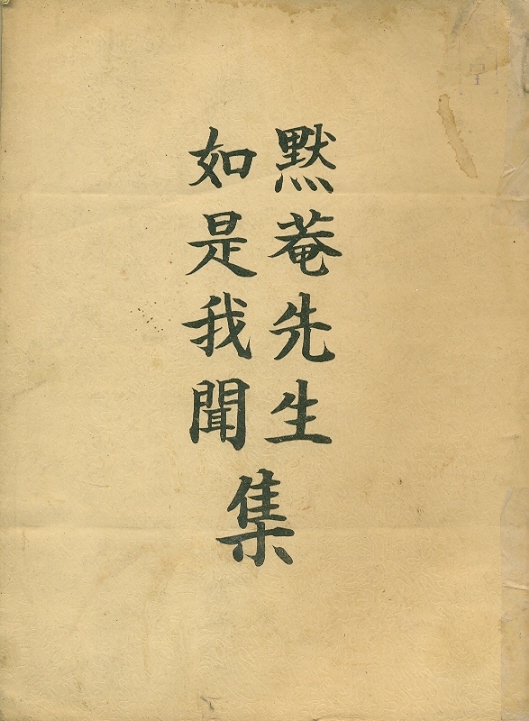 默菴先生
如是我聞
集